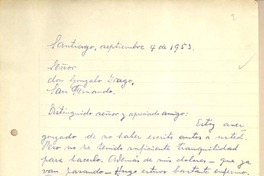 Santiago, septiembre 4 de 1953.
Señor
don Gonzalo Drago,
San Fernando.
Distinguido señor y apreciado amigo:
Estoy aver-
gonzado de no haber escrito antes a usted.
Pero no he tenido suficiente tranquilidad
para hacerlo. Además de mis dolores - que ya
van pasando - Hugo estuvo bastante enfermo,